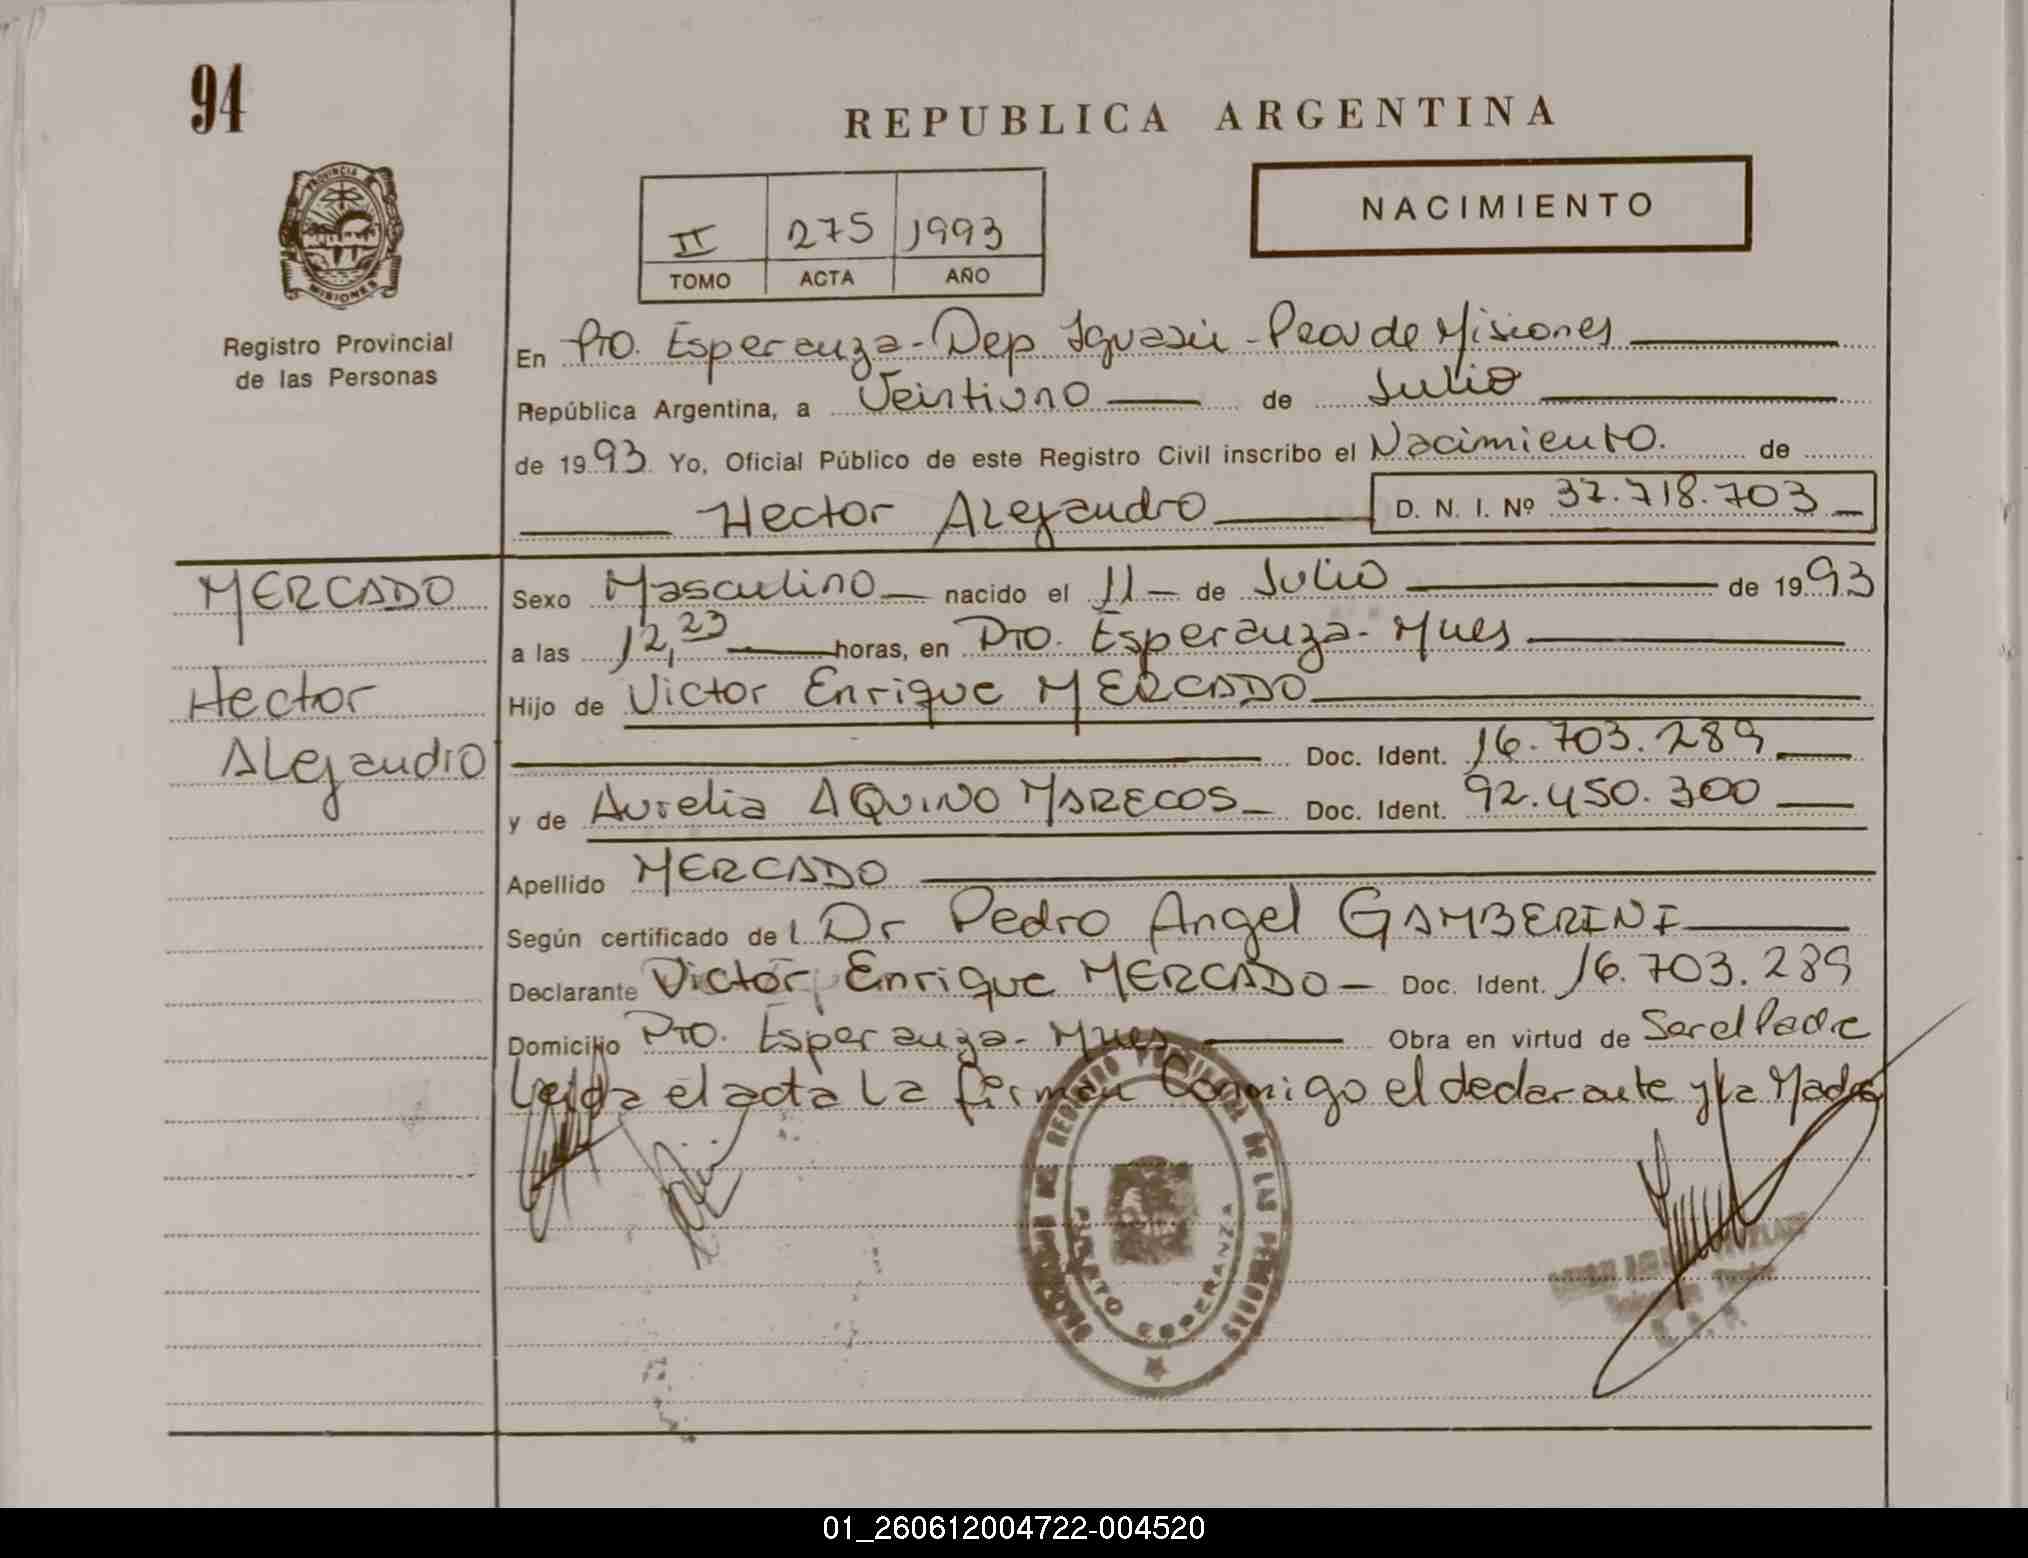 94
REPUBLICA ARGENTINA
PROVINCIA
MISIONES
Registro Provincial
de las Personas
II 275 1993
TOMO ACTA AÑO
NACIMIENTO
En Pto. Esperanza - Dep Iguazú - Pcia de Misiones
República Argentina, a Veintiuno de Julio
de 1993 Yo, Oficial Público de este Registro Civil inscribo el Nacimiento. de
Hector Alejandro D. N. I. Nº 37.718.703
MERCADO
Hector
Alejandro
Sexo Masculino nacido el 11 de Julio de 1993
a las 12,23 horas, en Pto. Esperanza - Mnes
Hijo de Victor Enrique MERCADO
Doc. Ident. 16.703.289
y de Aurelia AQUINO MARECOS Doc. Ident. 92.450.300
Apellido MERCADO
Según certificado del Dr Pedro Angel GAMBERINI
Declarante Victor Enrique MERCADO Doc. Ident. 16.703.289
Domicilio Pto. Esperanza - Mnes Obra en virtud de Ser el Padre
Leida el acta la firman Conmigo el declarante y la Madre
DE LAS PERSONAS
PUERTO ESPERANZA
01_260612004722-004520